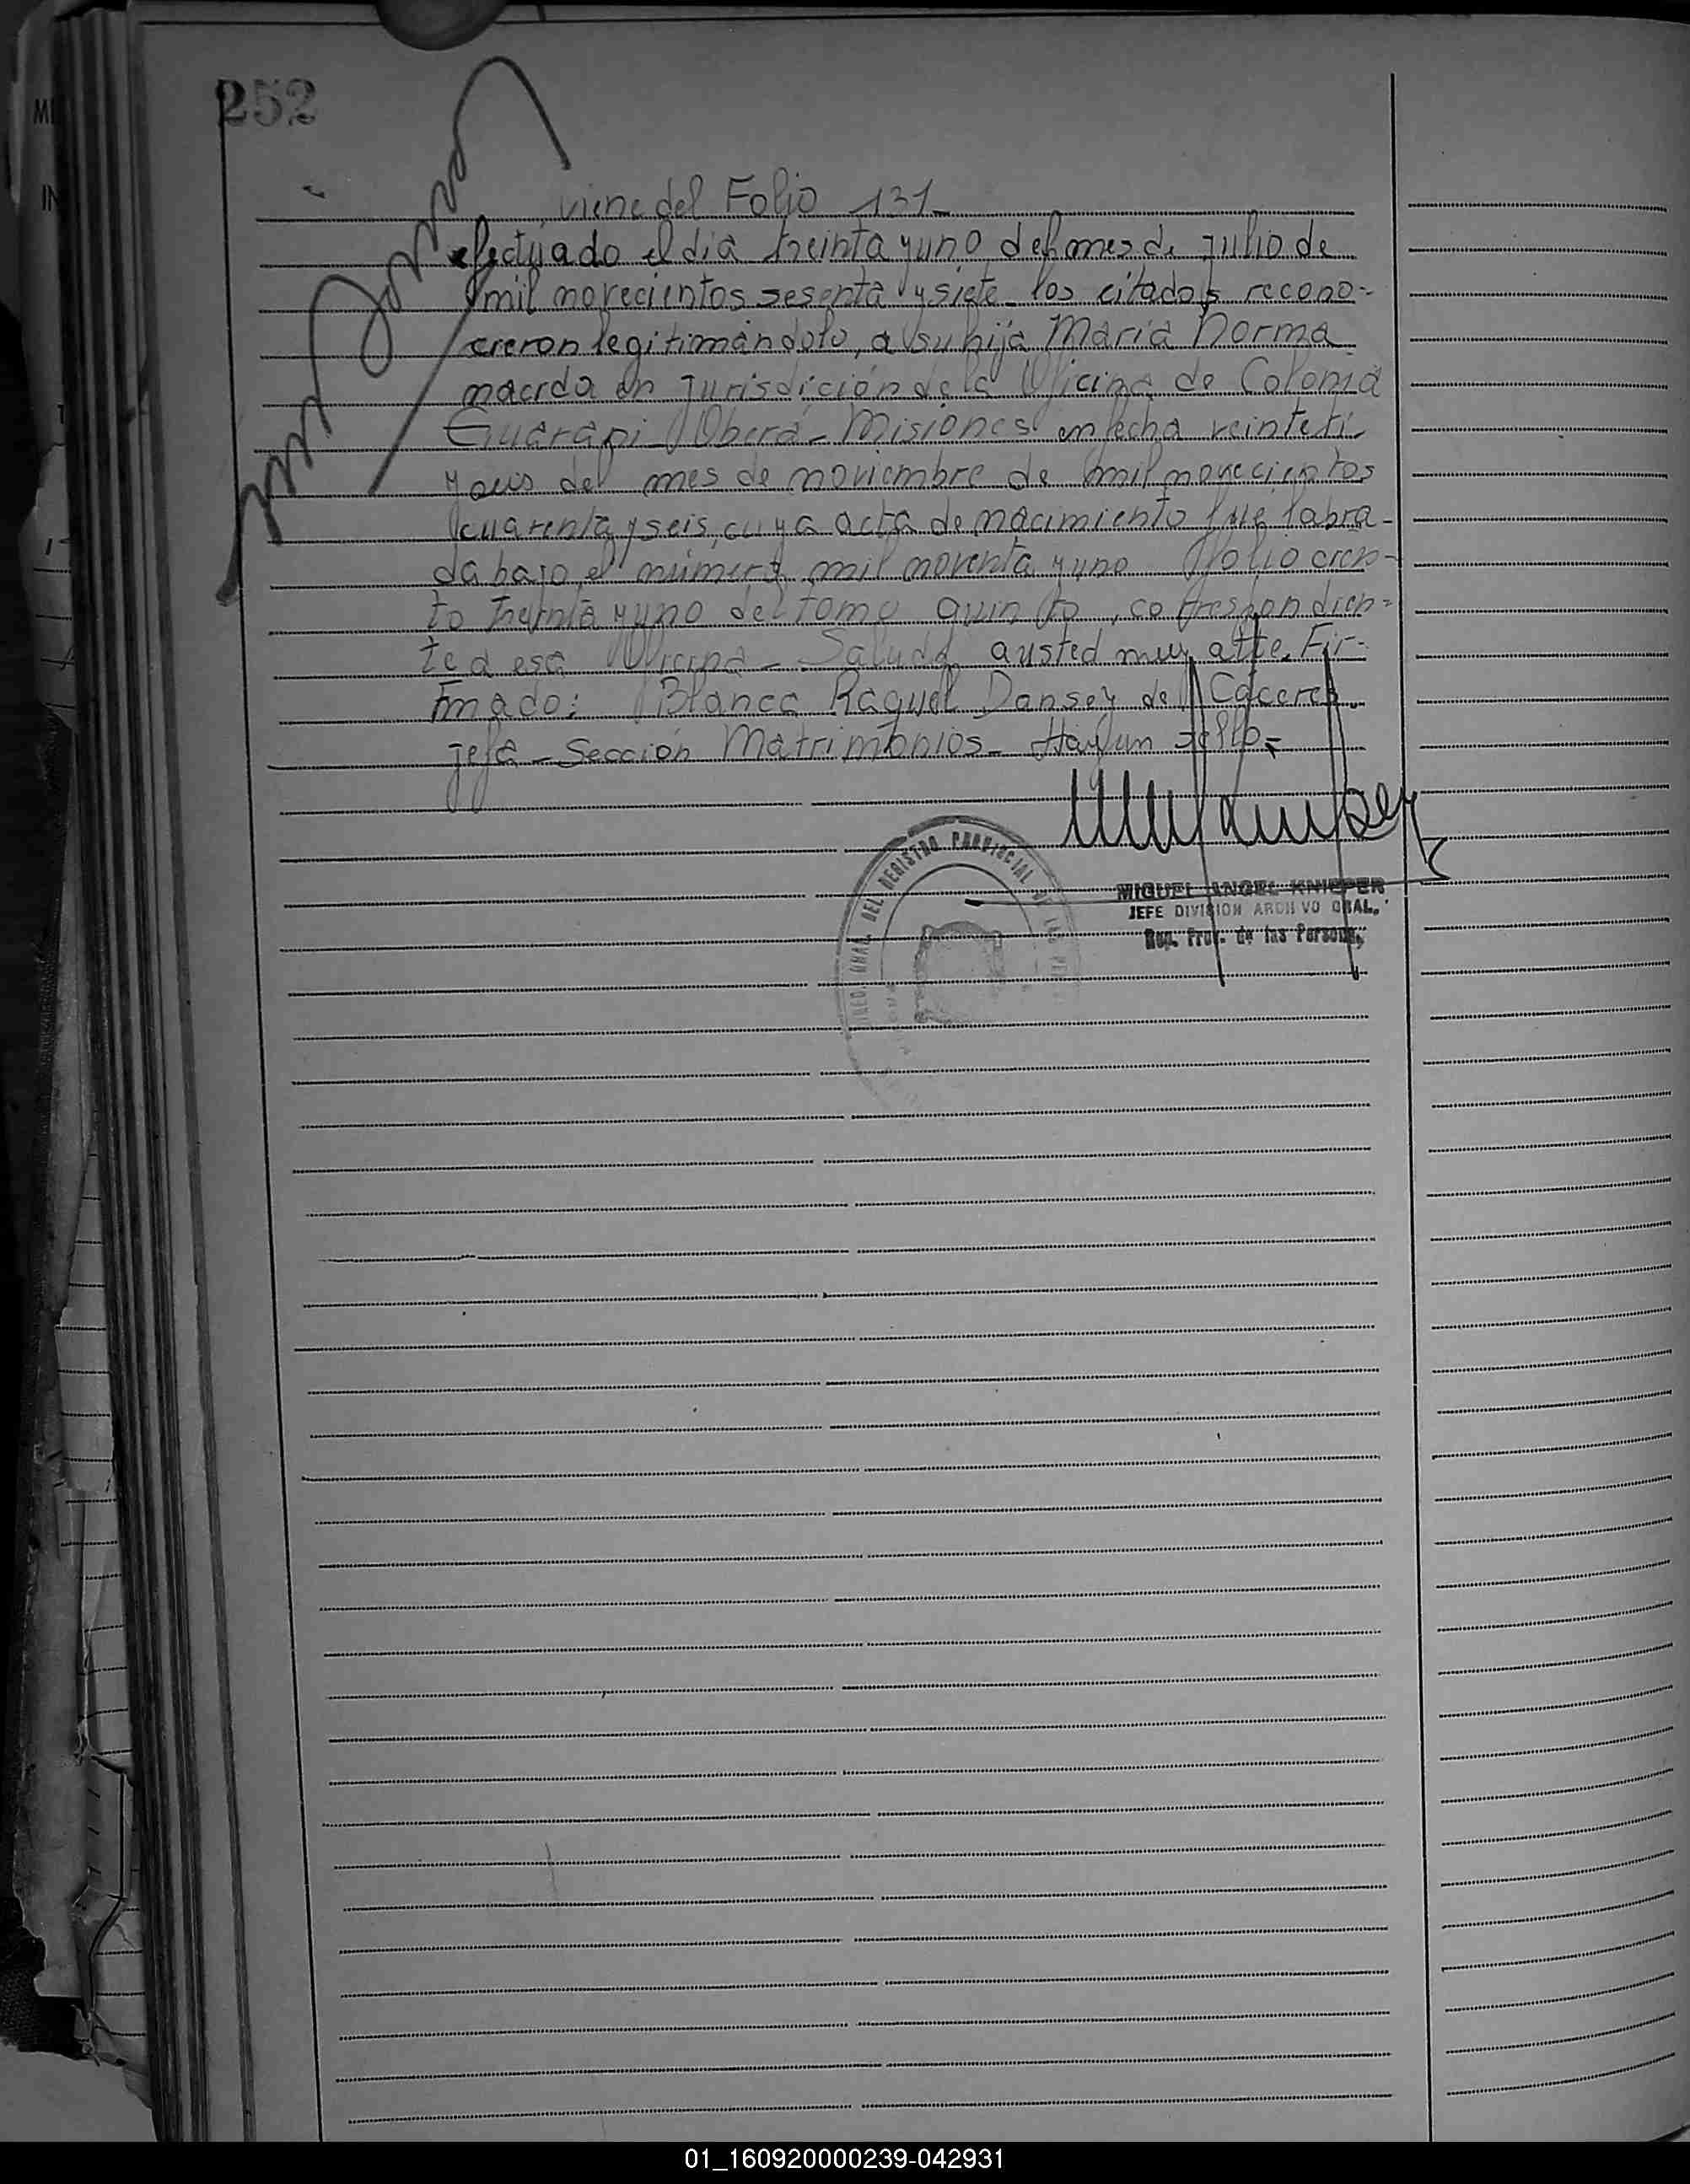 252
viene del Folio 131_
efectuado el dia treinta y uno del mes de julio de
mil novecientos sesenta y siete los citados recono-
cieron legitimandolo, a su hija Maria Norma
nacida en jurisdición de la Oficina de Colonia
Guarani Oberá - Misiones en fecha veinteti-
del mes de noviembre de mil novecientos
cuarenta y seis, cuya acta de nacimiento fue labra-
da bajo el número mil noventa y uno folio cien-
to treinta y uno del tomo quinto, correspondien-
te a esa Oficina - Saluda a usted muy atte. Fir-
mado: Blanca Raquel Dansey de Cáceres
jefa - Sección Matrimonios - Hay un sello.-
DEL REGISTRO PROVINCIAL
MIGUEL ANGEL KNIEPER
JEFE DIVISION ARCHIVO GRAL.
Reg. Prov. de las Personas
01_160920000239-042931